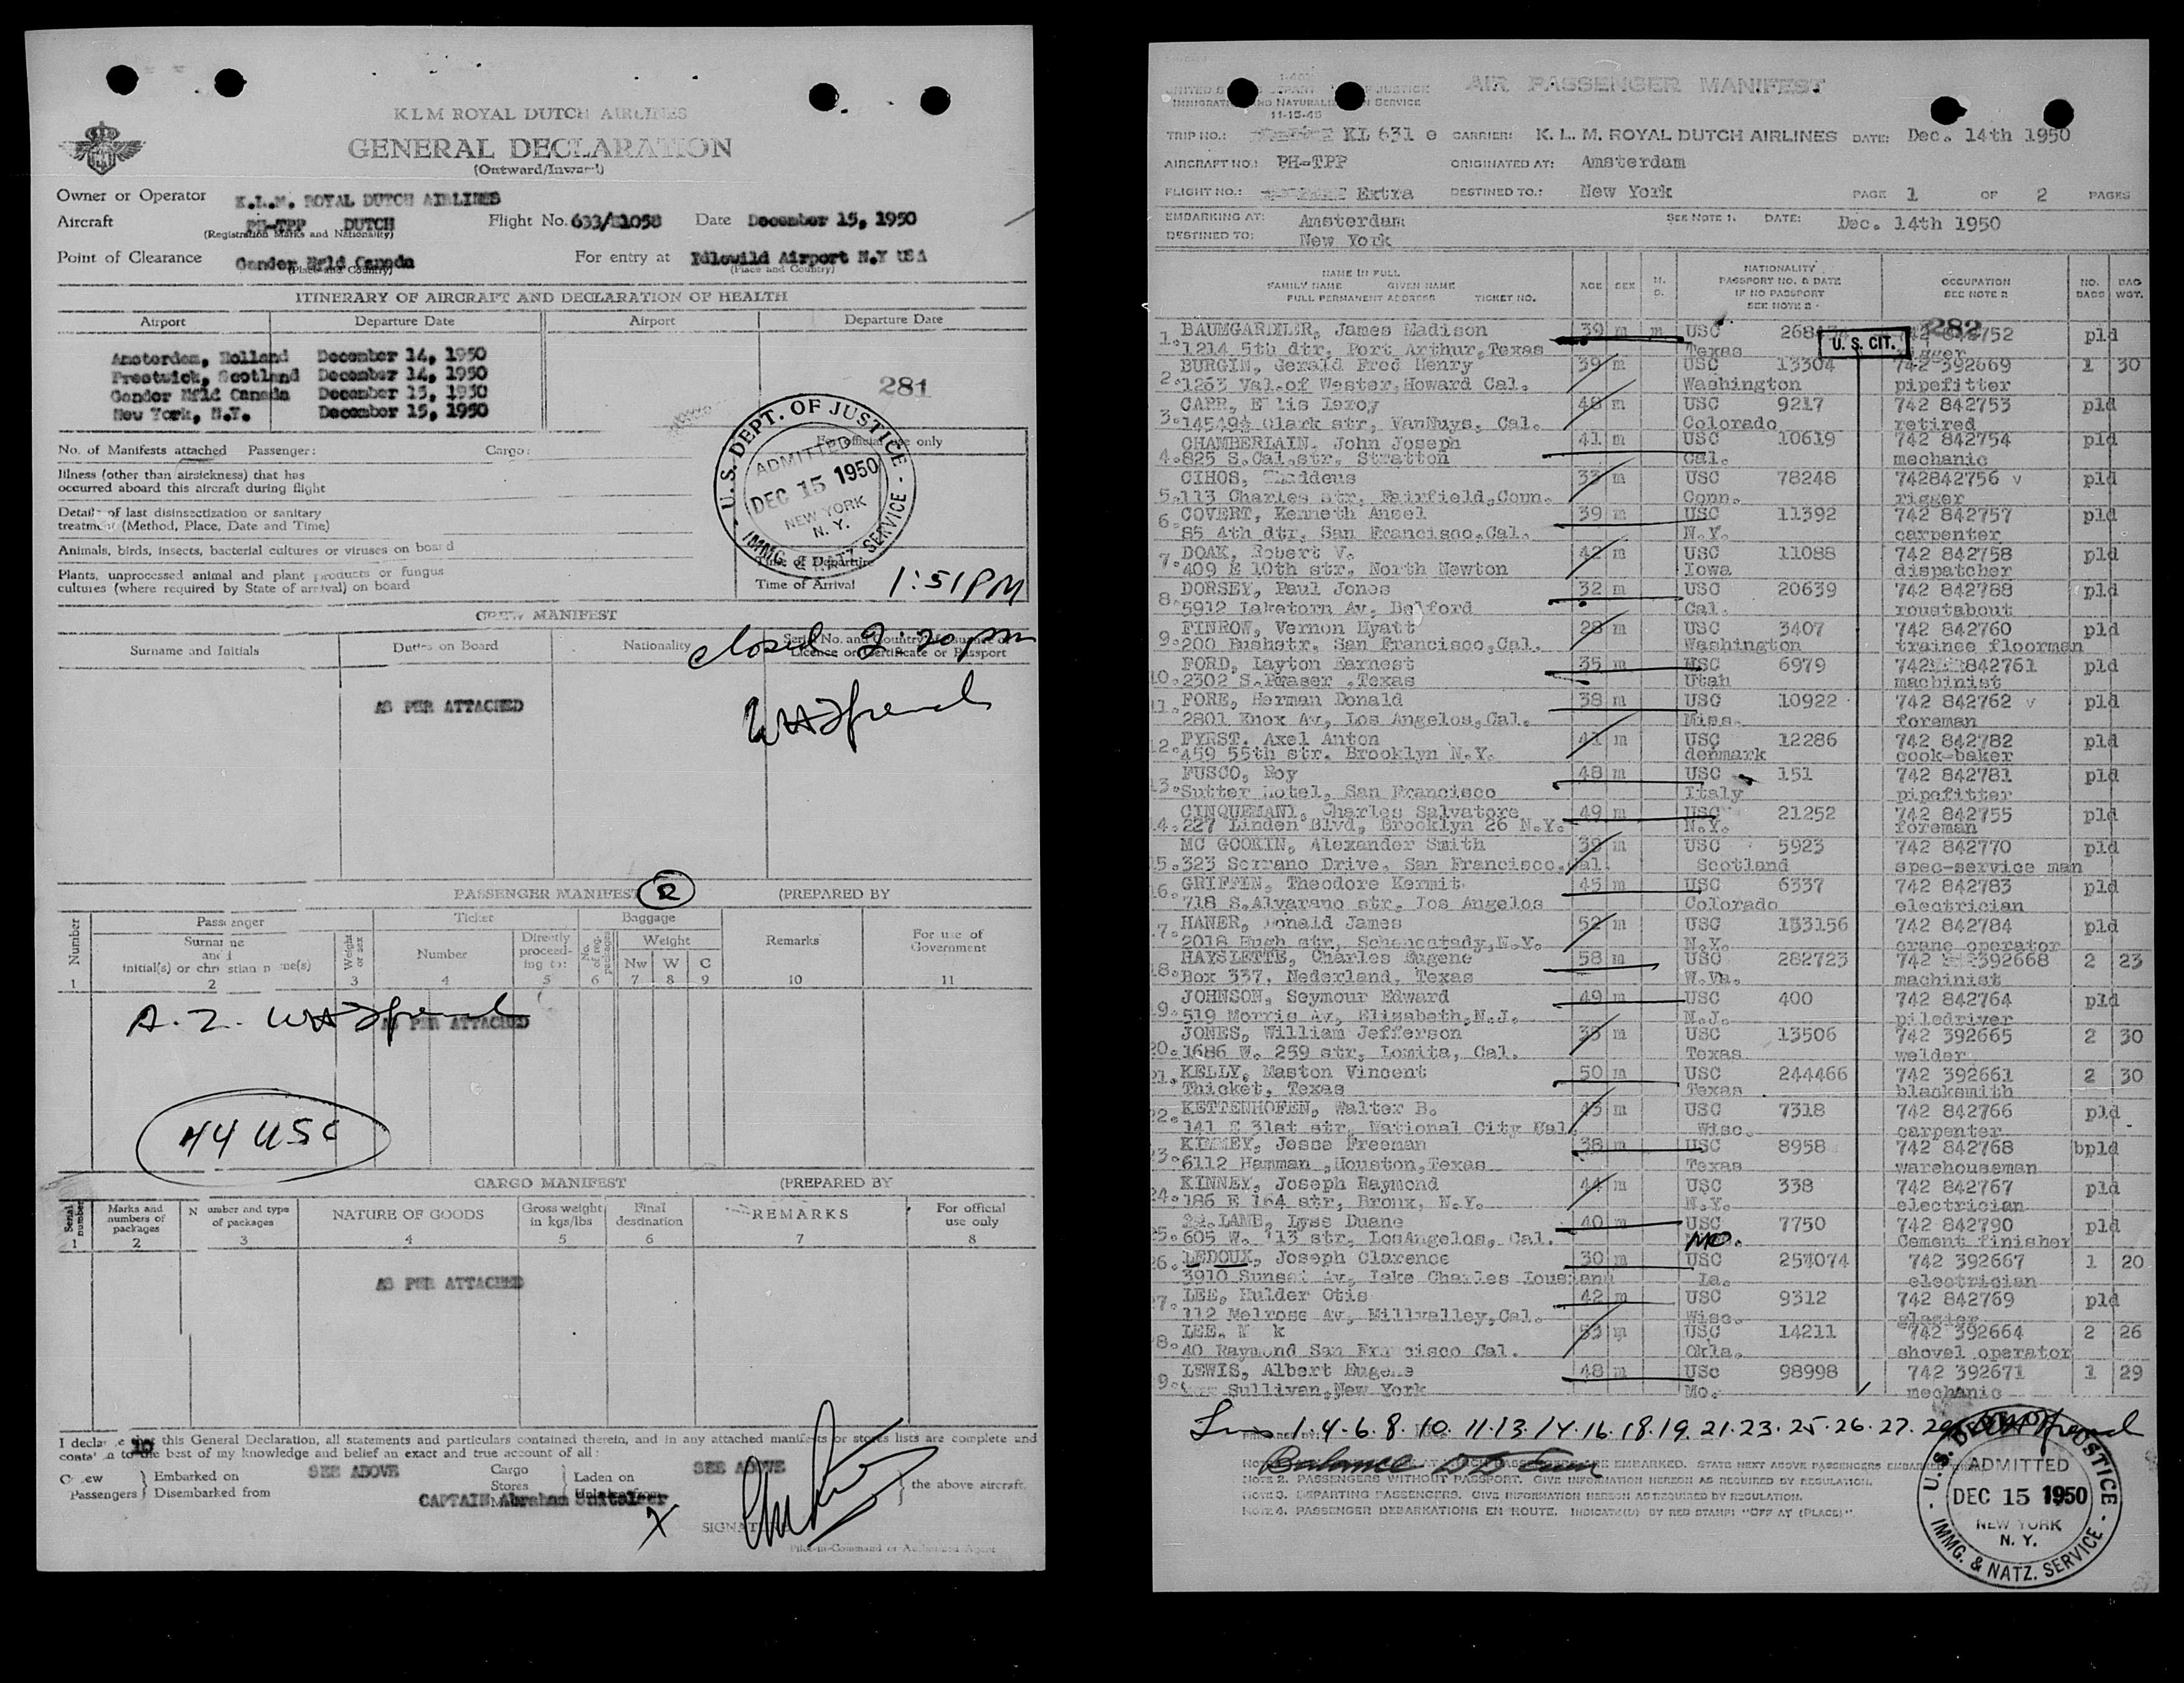 KLM ROYAL DUTCH AIRLINES
GENERAL DECLARATION
(Outward/Inward)
Owner or Operator K.L.M. ROYAL DUTCH AIRLINES
Aircraft PH-TPP DUTCH Flight No. 633/E1058 Date December 15, 1950
(Registration Marks and Nationality)
Point of Clearance Gander Nfld Canada For entry at Idlewild Airport N.Y USA
(Place and Country) (Place and Country)
ITINERARY OF AIRCRAFT AND DECLARATION OF HEALTH
Airport Departure Date Airport Departure Date
Amsterdam, Holland December 14, 1950
Prestwick, Scotland December 14, 1950
Gander Nfld Canada December 15, 1950
New York, N.Y. December 15, 1950
281
No. of Manifests attached Passenger: Cargo:
For official use only
Illness (other than airsickness) that has
occurred aboard this aircraft during flight
Details of last disinsectization or sanitary
treatment (Method, Place, Date and Time)
Animals, birds, insects, bacterial cultures or viruses on board
Plants, unprocessed animal and plant products or fungus
cultures (where required by State of arrival) on board
U.S. DEPT. OF JUSTICE
ADMITTED
DEC 15 1950
NEW YORK
N. Y.
IMMG. & NATZ. SERVICE
Time of Departure
Time of Arrival 1:51 PM
CREW MANIFEST
closed 2:20 pm
Surname and Initials Duties on Board Nationality Serial No. and Country of Issuance of
Licence or Certificate or Passport
AS PER ATTACHED
PASSENGER MANIFEST (PREPARED BY
Number Passenger Ticket Baggage Remarks For use of
Government
Surname
and
initial(s) or christian name(s) Weight or sex Number Directly
proceed-
ing to: No. of reg. packages Weight
Nw W C
1 2 3 4 5 6 7 8 9 10 11
AS PER ATTACHED
44 USC
CARGO MANIFEST (PREPARED BY
Serial number Marks and
numbers of
packages Number and type
of packages NATURE OF GOODS Gross weight
in kgs/lbs Final
destination REMARKS For official
use only
1 2 3 4 5 6 7 8
AS PER ATTACHED
I declare that this General Declaration, all statements and particulars contained therein, and in any attached manifests or stores lists are complete and
to the best of my knowledge and belief an exact and true account of all:
Crew Embarked on SEE ABOVE Cargo Laden on SEE ABOVE the above aircraft.
Passengers Disembarked from Stores
CAPTAIN Abraham
Pilot-in-Command or Authorized Agent
AIR PASSENGER MANIFEST
IMMIGRATION AND NATURALIZATION SERVICE
11-15-45
TRIP NO.: KL 631 CARRIER: K. L. M. ROYAL DUTCH AIRLINES DATE: Dec. 14th 1950
AIRCRAFT NO.: PH-TPP ORIGINATED AT: Amsterdam
FLIGHT NO.: Extra DESTINED TO.: New York PAGE 1 OF 2 PAGES
EMBARKING AT: Amsterdam SEE NOTE 1. DATE: Dec. 14th 1950
DESTINED TO: New York
NAME IN FULL
FAMILY NAME GIVEN NAME
FULL PERMANENT ADDRESS TICKET NO. AGE SEX NATIONALITY
PASSPORT NO. & DATE
IF NO PASSPORT
SEE NOTE 2 OCCUPATION
SEE NOTE 2 NO.
BAGS BAG
WGT.
282
U. S. CIT.
1. BAUMGARDLER, James Madison 39 m m USC pld
1214 5th dtr, Port Arthur, Texas Texas rigger
2. BURGIN, Gerald Fred Henry 39 m USC 13304 742-392669 1 30
1263 Val.of Wester, Howard Cal. Washington pipefitter
3. CARR, Ellis Leroy 48 m USC 9217 742 842753 pld
14549½ Clark str, VanNuys, Cal. Colorado retired
4. CHAMBERLAIN, John Joseph 41 m USC 10619 742 842754 pld
825 S.Cal.str. Stratton Cal. mechanic
5. CIHOS, Thaddeus 33 m USC 78248 742842756 v pld
113 Charles str, Fairfield,Conn. Conn. rigger
6. COVERT, Kenneth Ansel 39 m USC 11392 742 842757 pld
85 4th dtr, San Francisco,Cal. N.Y. carpenter
7. DOAK, Robert V. 42 m USC 11088 742 842758 pld
409 E 10th str, North Newton Iowa dispatcher
8. DORSEY, Paul Jones 32 m USC 20639 742 842788 pld
5912 Laketorn Av, Belford Cal. roustabout
9. FINROW, Vernon Hyatt 28 m USC 3407 742 842760 pld
200 Bushstr. San Francisco,Cal. Washington trainee floorman
10. FORD, Layton Earnest 35 m USC 6979 742 842761 pld
2302 S.Fraser ,Texas Utah machinist
11. FORE, Herman Donald 38 m USC 10922 742 842762 v pld
2801 Knox Av, Los Angelos,Cal. Miss. foreman
12. FYRST, Axel Anton 41 m USC 12286 742 842782 pld
459 55th str. Brooklyn N.Y. denmark cook-baker
13. FUSCO, Roy 48 m USC 151 742 842781 pld
Sutter Hotel, San Francisco Italy pipefitter
14. CINQUEMANI, Charles Salvatore 49 m USC 21252 742 842755 pld
227 Linden Blvd, Brooklyn 26 N.Y. N.Y. foreman
15. MC GOOKIN, Alexander Smith 39 m USC 5923 742 842770 pld
323 Serrano Drive, San Francisco,Cal. Scotland spec-service man
16. GRIFFIN, Theodore Kermit 45 m USC 6337 742 842783 pld
718 S.Alvarano str, Los Angelos Colorado electrician
17. HANER, Donald James 52 m USC 153156 742 842784 pld
2018 Hugh str, Schenectady,N.Y. N.Y. crane operator
18. HAYSLETTE, Charles Eugene 58 m USC 282723 742 392668 2 23
Box 337, Nederland, Texas W.Va. machinist
19. JOHNSON, Seymour Edward 49 m USC 400 742 842764 pld
519 Morris Av, Elizabeth,N.J. N.J. piledriver
20. JONES, William Jefferson 33 m USC 13506 742 392665 2 30
1686 W. 259 str, Lomita, Cal. Texas welder
21. KELLY, Maston Vincent 50 m USC 244466 742 392661 2 30
Thicket, Texas Texas blacksmith
22. KETTENHOFEN, Walter B. 43 m USC 7318 742 842766 pld
141 E 31st str, National City Cal. Wisc. carpenter
23. KIMMEY, Jesse Freeman 38 m USC 8958 742 842768 bpld
6112 Hamman ,Houston,Texas Texas warehouseman
24. KINNEY, Joseph Raymond 44 m USC 338 742 842767 pld
186 E 164 str, Bronx, N.Y. N.Y. electrician
25. LAND, Lyse Duane 40 m USC 7750 742 842790 pld
605 W. 113 str, LosAngelos, Cal. MO. Cement finisher
26. LEDOUX, Joseph Clarence 30 m USC 257074 742 392667 1 20
3910 Sunset Av, Lake Charles Lousiana La. electrician
27. LEE, Hulder Otis 42 m USC 9312 742 842769 pld
112 Melrose Av, Millvalley,Cal. Wisc. glazier
28. LEE, 53 m USC 14211 742 392664 2 26
40 Raymond San Francisco Cal. Okla. shovel operator
29. LEWIS, Albert Eugene 48 m USC 98998 742 392671 1 29
Sullivan,New York Mo. mechanic
1.4.6.8.10.11.13.14.16.18.19.21.23.25.26.27.29
Balance
NOTE 2. PASSENGERS WITHOUT PASSPORT. GIVE INFORMATION HEREON AS REQUIRED BY REGULATION.
NOTE 3. DEPARTING PASSENGERS. GIVE INFORMATION HEREON AS REQUIRED BY REGULATION.
NOTE 4. PASSENGER DEBARKATIONS EN ROUTE. INDICATE(D) BY RED STAMP: "OFF AT (PLACE)".
U.S. DEPT. OF JUSTICE
ADMITTED
DEC 15 1950
NEW YORK
N. Y.
IMMG. & NATZ. SERVICE